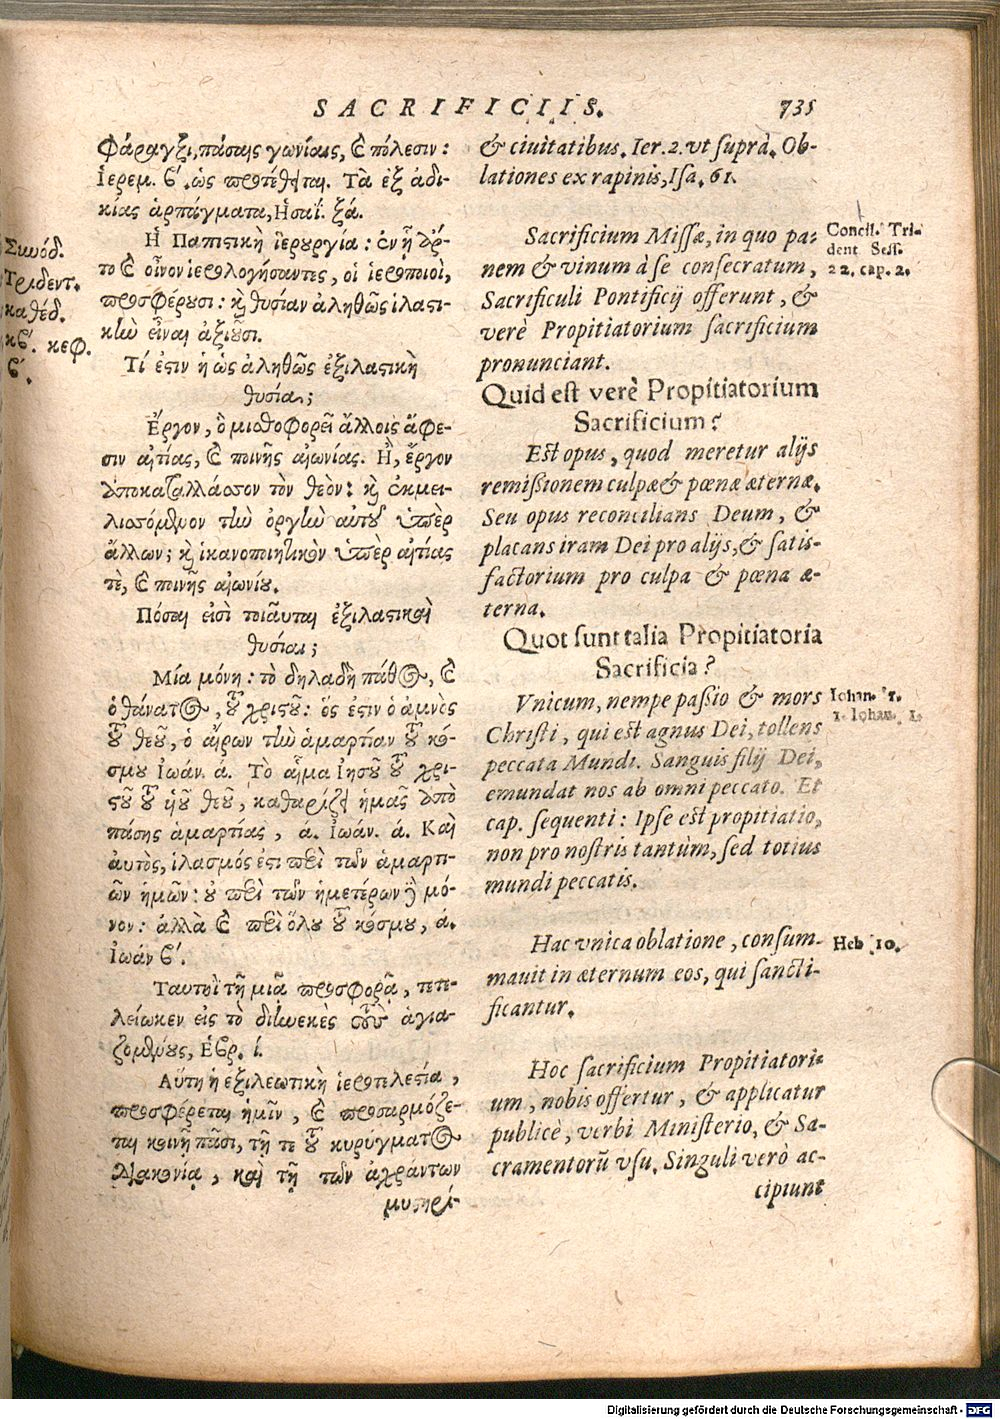 SACRIFICIIS. 735
φάραγξι, πάσαις γωνίαις, καὶ πόλεσιν:
Ἱερεμ. ϛʹ. ὡς προτέθηται. Τὰ ἐξ ἀδι-
κίας ἁρπάγματα, Ἡσαΐ. ξά.
Ἡ Παπιστικὴ ἱερουργία: ἐν ᾗ ἄρ-
το καὶ οἶνον ἱερολογήσαντες, οἱ ἱεροποιοὶ,
προσφέρουσι: καὶ θυσίαν ἀληθῶς ἱλαστι-
κὴν εἶναι ἀξιοῦσι.
Τί ἐστιν ἡ ὡς ἀληθῶς ἐξιλαστικὴ
θυσία;
Ἔργον, ὃ μισθοφορεῖ ἄλλοις ἄφε-
σιν αἰτίας, καὶ ποινῆς αἰωνίας. Ἢ, ἔργον
ἀποκαταλλάσσον τὸν θεὸν: καὶ ἐκμει-
λισσόμενον τὴν ὀργὴν αὐτοῦ ὑπὲρ
ἄλλων; καὶ ἱκανοποιητικὸν ὑπὲρ αἰτίας
τὲ, καὶ ποινῆς αἰωνίου.
Πόσαι εἰσὶ τοιαῦται ἐξιλαστικαὶ
θυσίαι;
Μία μόνη: τὸ δηλαδὴ πάθος, καὶ
ὁ θάνατος, τοῦ χριστοῦ: ὅς ἐστιν ὁ ἀμνὸς
τοῦ θεοῦ, ὁ αἴρων τὴν ἁμαρτίαν τοῦ κό-
σμου Ἰωάν. ά. Τὸ αἷμα Ἰησοῦ τοῦ χρι-
στοῦ τοῦ υἱοῦ θεοῦ, καθαρίζει ἡμᾶς ἀπὸ
πάσης ἁμαρτίας, ά. Ἰωάν. ά. Καὶ
αὐτὸς, ἱλασμός ἐστι περὶ τῶν ἁμαρτι-
ῶν ἡμῶν: οὐ περὶ τῶν ἡμετέρων δὲ μό-
νον: ἀλλὰ καὶ περὶ ὅλου τοῦ κόσμου, ά.
Ἰωάν ϛʹ.
Ταυτοῒ τῇ μιᾷ προσφορᾷ, τετε-
λείωκεν εἰς τὸ διηνεκὲς τοὺς ἁγια-
ζομένους, Ἑβρ. ί.
Αὕτη ἡ ἐξιλεωτικὴ ἱεροτελεστία,
προσφέρεται ἡμῖν, καὶ προσαρμόζε-
ται κοινῇ πᾶσι, τῇ τε τοῦ κυρύγματος
διακονίᾳ, καὶ τῇ τῶν ἀχράντων
μυστηρί-
Συνόδ.
Τριδεντ.
καθέδ.
κϛʹ. κεφ.
ϛʹ.
& ciuitatibus. Ier. 2. vt suprà. Ob-
lationes ex rapinis, Isa. 61.
Sacrificium Missæ, in quo pa-
nem & vinum à se consecratum,
Sacrificuli Pontificij offerunt, &
verè Propitiatorium sacrificium
pronunciant.
Quid est verè Propitiatorium
Sacrificium?
Est opus, quod meretur alijs
remissionem culpæ & pœnæ æternæ.
Seu opus reconcilians Deum, &
placans iram Dei pro alijs, & satis-
factorium pro culpa & pœna æ-
terna.
Quot sunt talia Propitiatoria
Sacrificia?
Vnicum, nempe passio & mors
Christi, qui est agnus Dei, tollens
peccata Mundi. Sanguis filij Dei,
emundat nos ab omni peccato. Et
cap. sequenti: Ipse est propitiatio,
non pro nostris tantùm, sed totius
mundi peccatis.
Hac vnica oblatione, consum-
mauit in æternum eos, qui sancti-
ficantur.
Hoc sacrificium Propitiatori-
um, nobis offertur, & applicatur
publicè, verbi Ministerio, & Sa-
cramentorū vsu. Singuli verò ac-
cipiunt
Concil. Tri-
dent Sess.
22, cap. 2.
Iohan. 1.
1. Iohan. 1.
Heb 10.
Digitalisierung gefördert durch die Deutsche Forschungsgemeinschaft - DFG